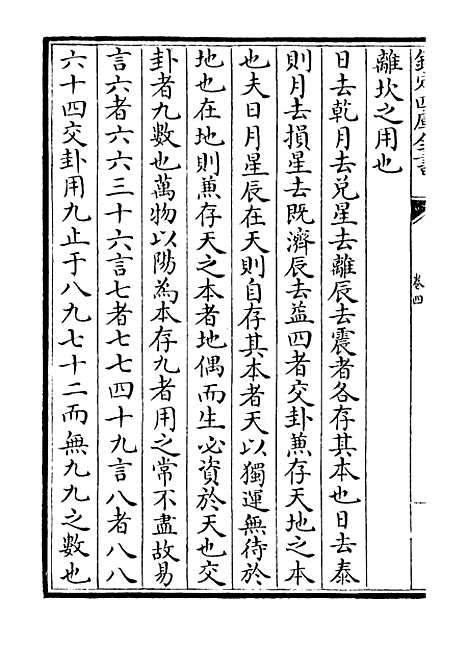 欽定四庫全書
卷四
離坎之用也
日去乾月去兌星去離辰去震者各存其本也日去泰
則月去損星去既濟辰去益四者交卦兼存天地之本
也夫日月星辰在天則自存其本者天以獨運無待於
地也在地則兼存天之本者地偶而生必資於天也交
卦者九數也萬物以陽為本存九者用之常不盡故易
言六者六六三十六言七者七七四十九言八者八八
六十四交卦用九止于八九七十二而無九九之數也